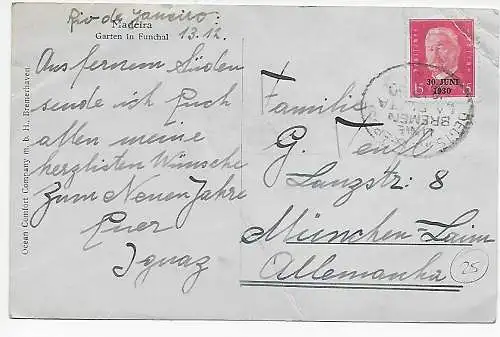 Rio de Janeiro
13.12.
Madeira
Garten in Funchal
Aus fernem Süden
sende ich Euch
allen meine
herzlisten Wünsche
zum Neuen Jahre
Euer
Ignaz
Ocean Comfort Company m. b. H. Bremerhaven.
Familie
G.
Lanzstr: 8
München-Laim
Allemanha
25
30. JUNI
1930
15
BREMEN